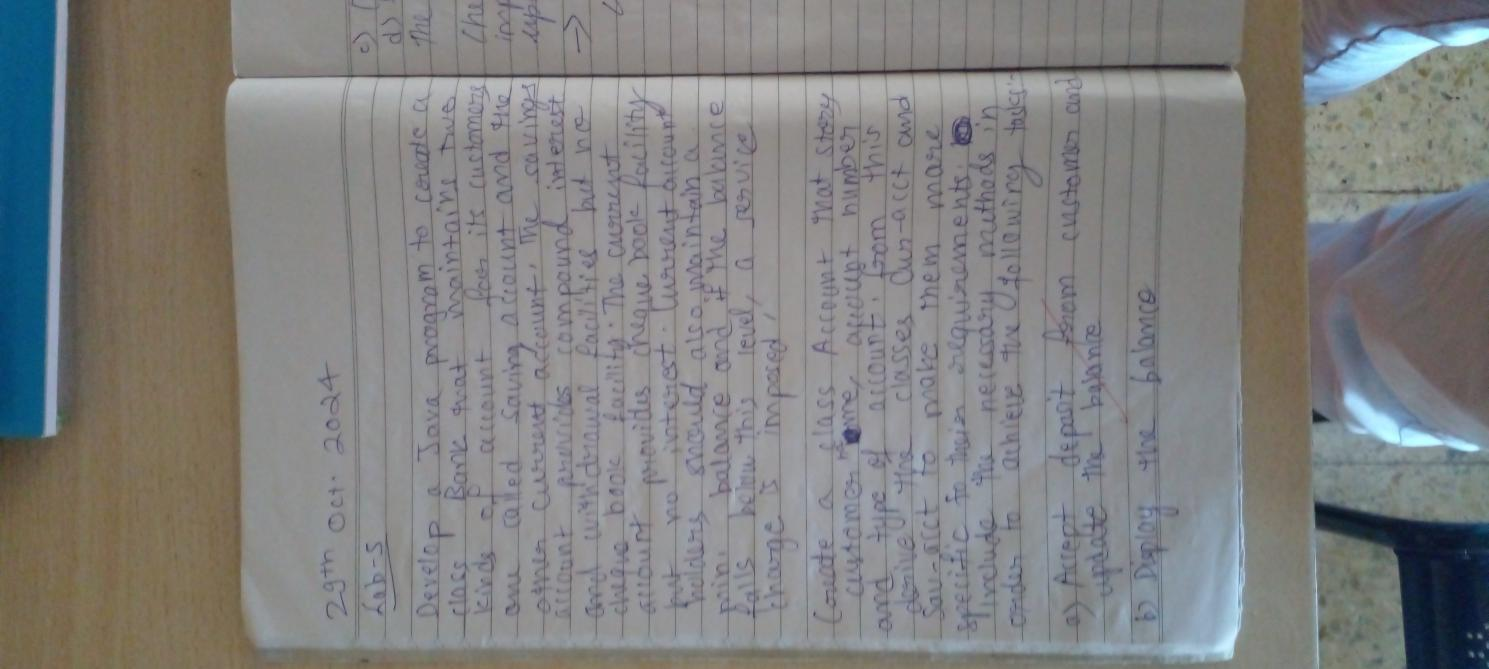 29th Oct. 2024
Lab-5
Develop a Java program to create a
class Bank that maintains two
kinds of account for its customers
one called saving account and the
other current account. The savings
account provides compound interest
and withdrawal facilities but no
cheque book facility. The current
account provides cheque book facility
but no interest. Current account
holders should also maintain a
min. balance and if the balance
falls below this level, a service
charge is imposed.
Create a class Account that story
customer name, account number
and type of account. From this
derive the classes Cur-acct and
Sav-acct to make them more
specific to their requirements.
Include the necessary methods in
order to achieve the following tasks:-
a) Accept deposit from customer and
update the balance
b) Display the balance
c)
d)
The